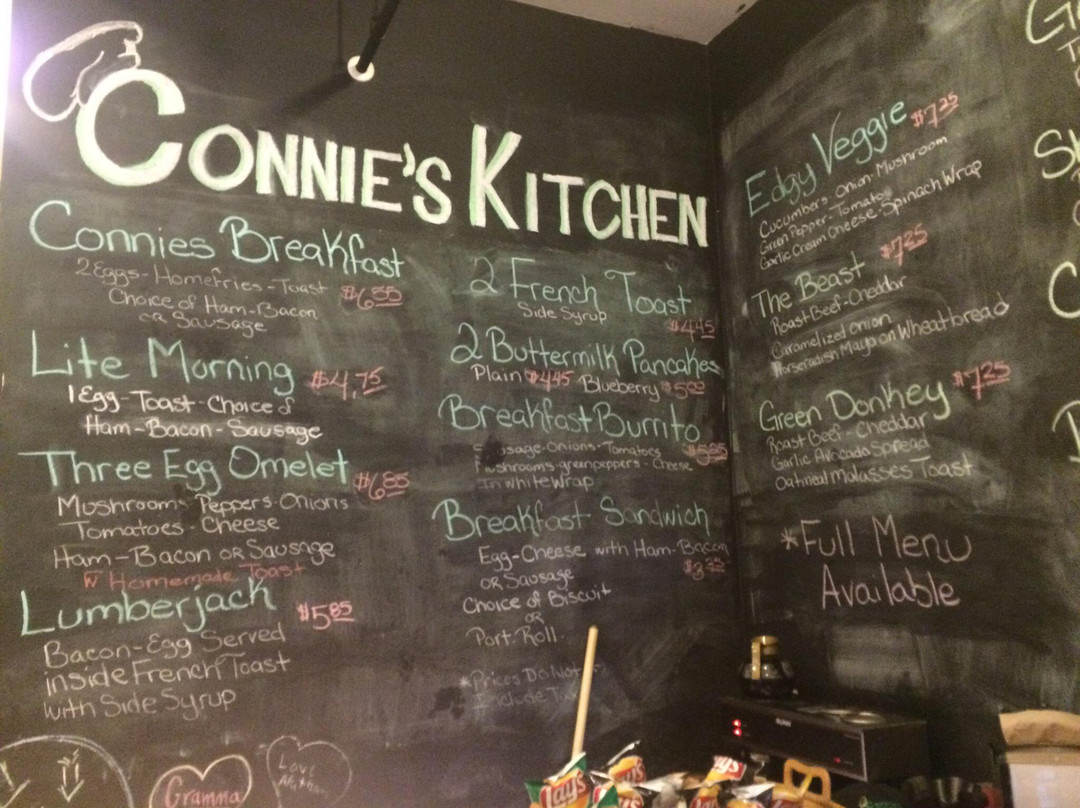 CONNIE'S KITCHEN
Connies Breakfast
2 Eggs - Homefries - Toast
Choice of Ham - Bacon
or Sausage
Lite Morning $4.75
1 Egg - Toast - Choice of
Ham - Bacon - Sausage
Three Egg Omelet $6.85
Mushroom - Peppers - Onions
Tomatoes - Cheese
Ham - Bacon or Sausage
w/ Homemade Toast
Lumberjack $5.85
Bacon - Egg Served
inside French Toast
with Side Syrup
Gramma
Love
2 French Toast
Side Syrup
$4.45
2 Buttermilk Pancakes
Plain $4.45 Blueberry
Breakfast Burrito
Sausage - Onions - Tomatoes
Mushrooms - greenpeppers - Cheese
In white Wrap
Breakfast Sandwich
Egg - Cheese with Ham - Bacon
or Sausage
Choice of Biscuit
or
Port. Roll.
*Prices Do Not
Include
Edgy Veggie $7.25
Cucumbers - Onion - Mushroom
Green Pepper - Tomatoes
Garlic Cream Cheese - Spinach Wrap
The Beast $7.25
Roast Beef - Cheddar
Caramelized onion
Horseradish Mayo on Wheat bread
Green Donkey $7.25
Roast Beef - Cheddar
Garlic Avocado Spread
Oatmeal Molasses Toast
*Full Menu
Available
Lay's
Lay's